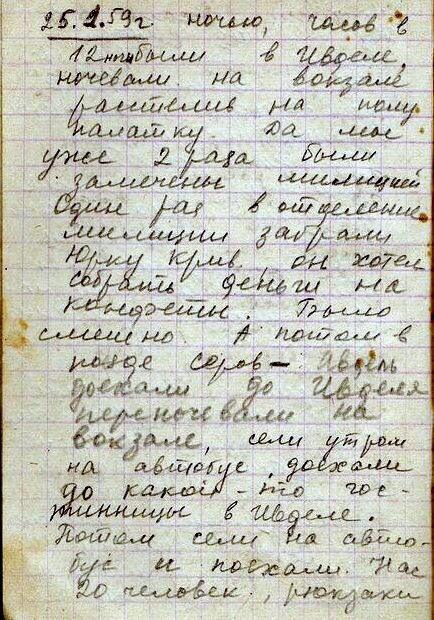 25.1.59г ночью, часов в
12 ночи были в Ивделе,
ночевали на вокзале
расстелив на полу
палатку. Да мы
уже 2 раза были
замечены милицией
Один раз в отделение
милиции забрали
Юрку Крив, он хотел
собрать деньги на
конфеты. Было
смешно. А потом в
поезде Серов – Ивдель
доехали до Ивделя
переночевали на
вокзале, сели утром
на автобус доехали
до какой-то гос-
тинницы в Ивделе.
Потом сели на авто-
бус и поехали. Нас
20 человек, рюкзаки